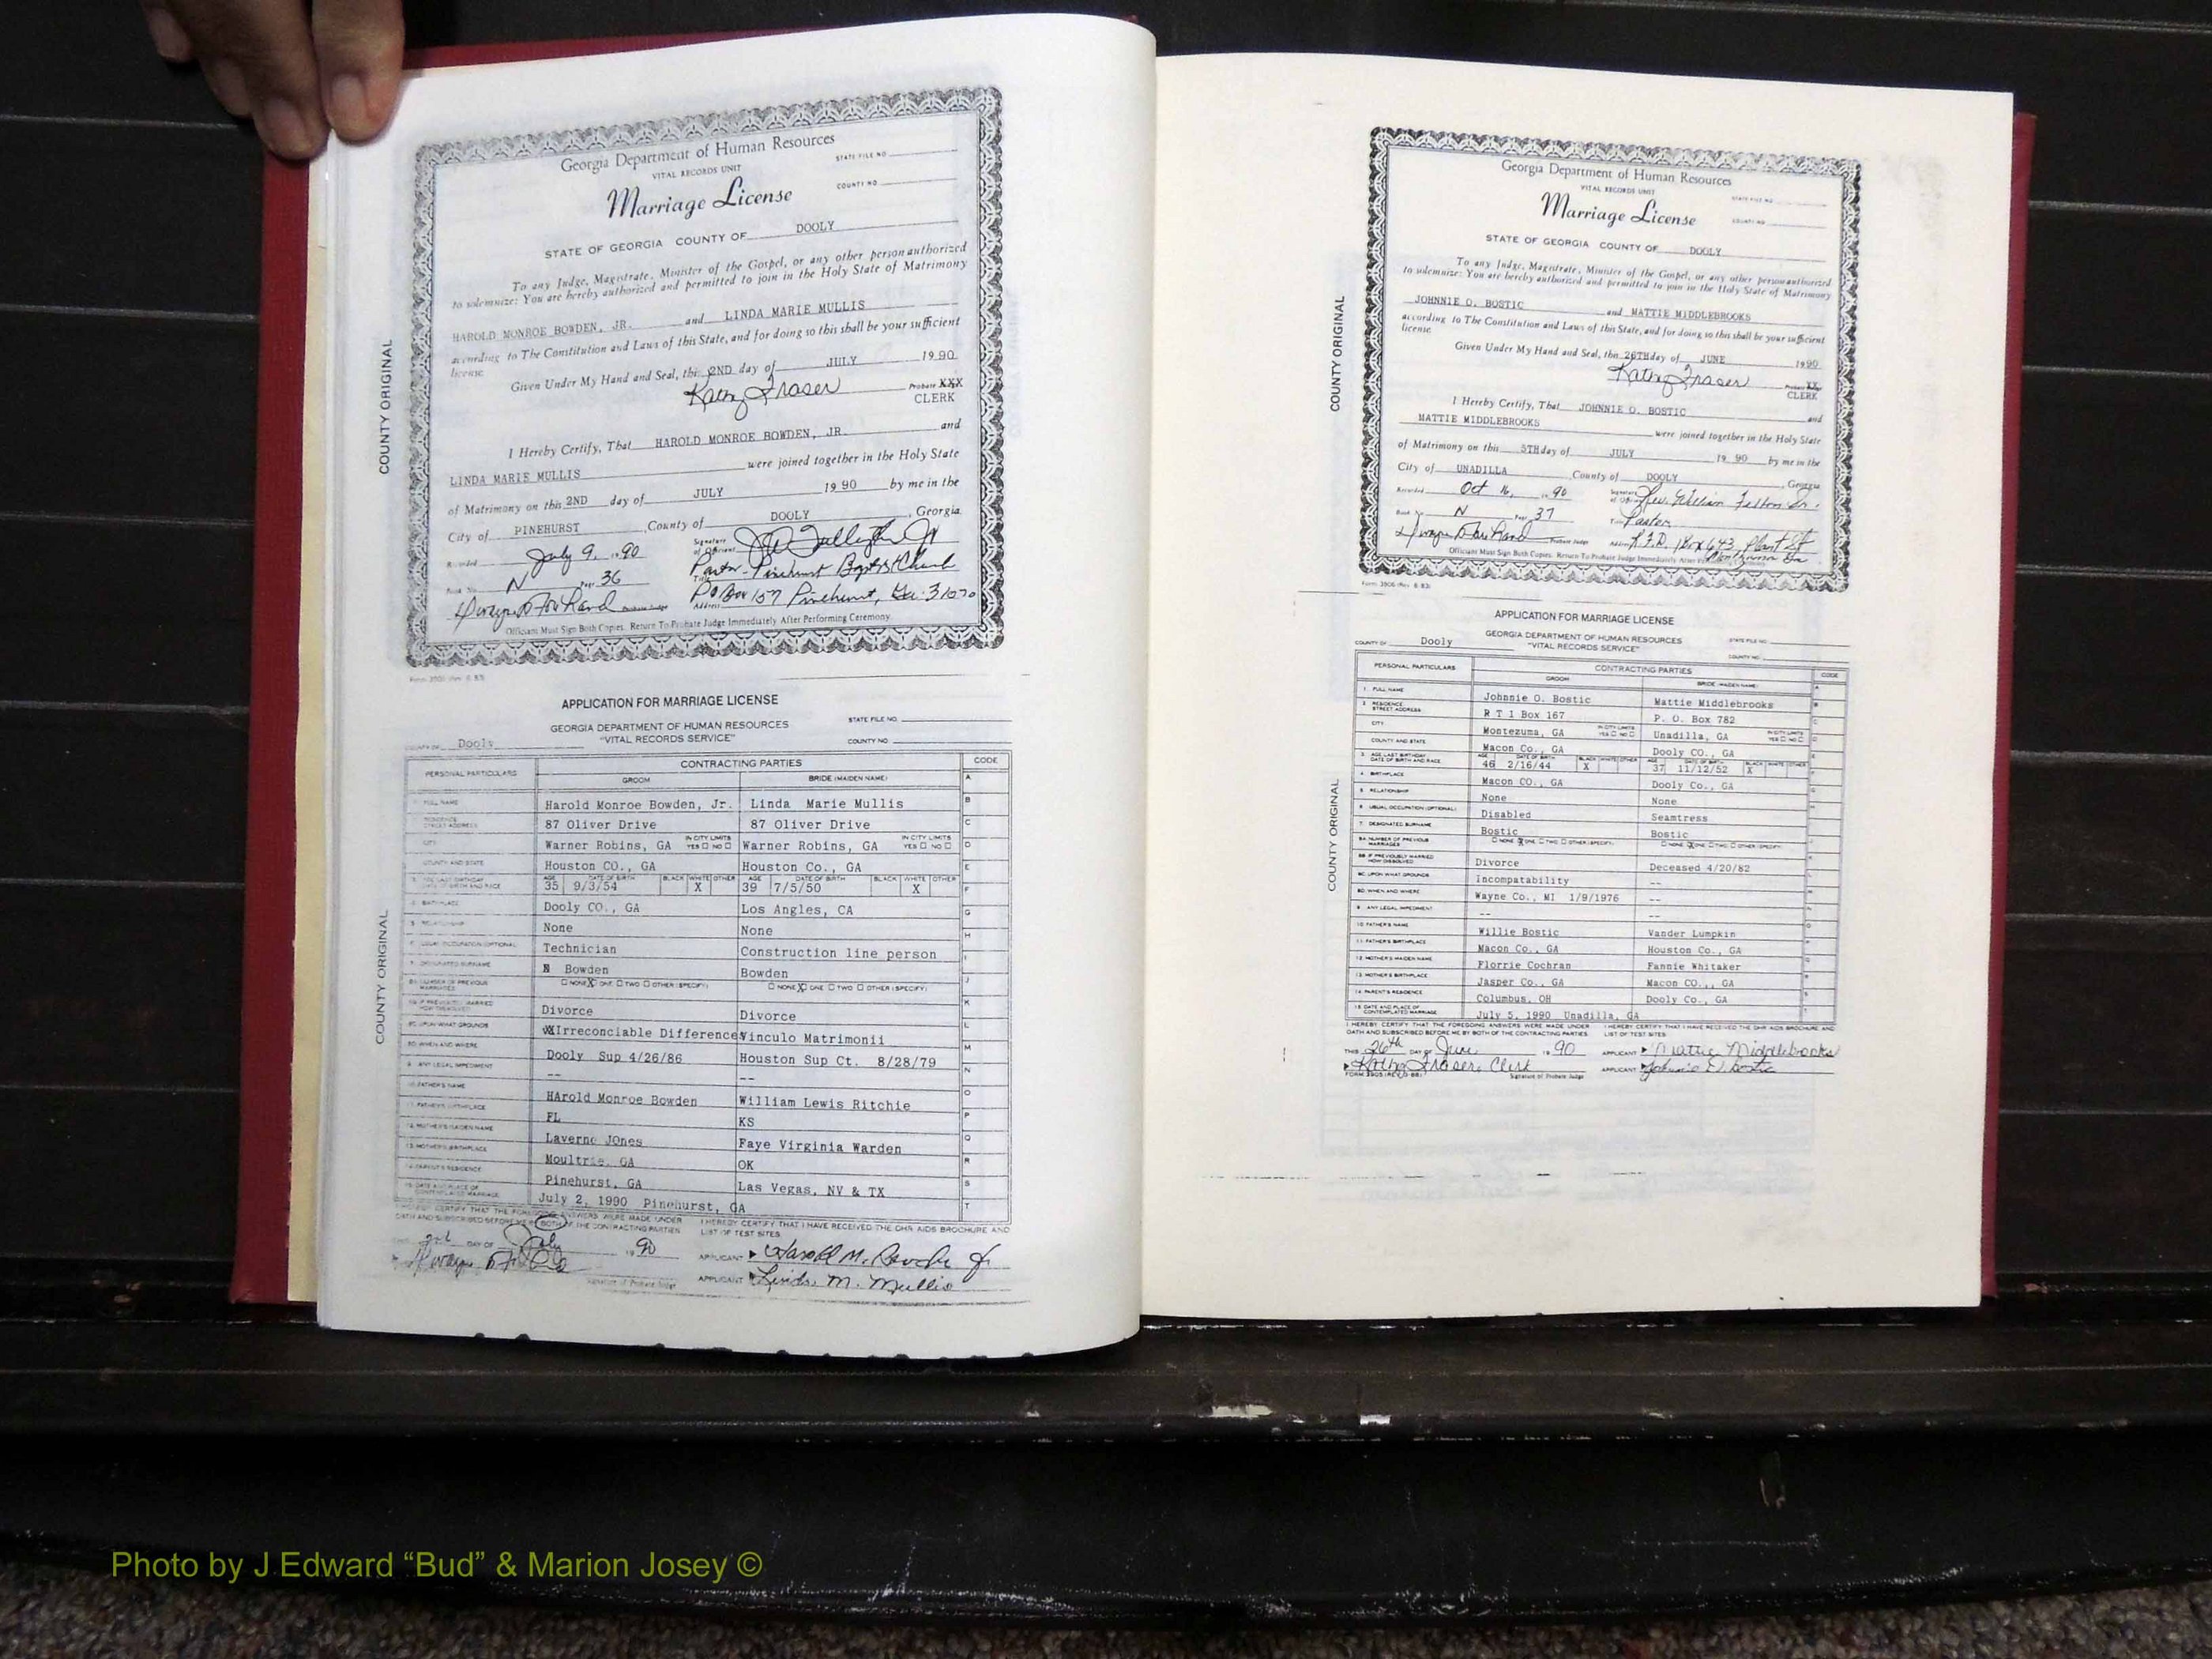 Georgia Department of Human Resources
VITAL RECORDS UNIT
STATE FILE NO.
Marriage License
COUNTY NO.
STATE OF GEORGIA COUNTY OF DOOLY
To any Judge, Magistrate, Minister of the Gospel, or any other person authorized
to solemnize: You are hereby authorized and permitted to join in the Holy State of Matrimony
HAROLD MONROE BOWDEN, JR. and LINDA MARIE MULLIS
according to The Constitution and Laws of this State, and for doing so this shall be your sufficient
license
Given Under My Hand and Seal, this 2ND day of JULY 1990
Kathy Fraser Probate XXX
CLERK
I Hereby Certify, That HAROLD MONROE BOWDEN, JR. and
LINDA MARIE MULLIS were joined together in the Holy State
of Matrimony on this 2ND day of JULY 1990 by me in the
City of PINEHURST County of DOOLY, Georgia
Recorded July 9, 1990 Signature of Officiant
Book No. N Page 36 Title Pastor - Pinehurst Baptist Church
Probate Judge Address PO Box 157 Pinehurst, Ga. 31070
Officiant Must Sign Both Copies. Return To Probate Judge Immediately After Performing Ceremony
COUNTY ORIGINAL
APPLICATION FOR MARRIAGE LICENSE
GEORGIA DEPARTMENT OF HUMAN RESOURCES
"VITAL RECORDS SERVICE"
STATE FILE NO.
COUNTY NO.
COUNTY OF Dooly
PERSONAL PARTICULARS CONTRACTING PARTIES CODE
GROOM BRIDE (MAIDEN NAME) A
1. FULL NAME Harold Monroe Bowden, Jr. Linda Marie Mullis B
RESIDENCE STREET ADDRESS 87 Oliver Drive 87 Oliver Drive C
CITY Warner Robins, GA IN CITY LIMITS YES ☐ NO ☐ Warner Robins, GA IN CITY LIMITS YES ☐ NO ☐ D
COUNTY AND STATE Houston CO., GA Houston Co., GA E
AGE 35 DATE OF BIRTH 9/3/54 BLACK WHITE X OTHER AGE 39 DATE OF BIRTH 7/5/50 BLACK WHITE X OTHER F
4. BIRTHPLACE Dooly CO., GA Los Angles, CA G
5. RELATIONSHIP None None H
6. USUAL OCCUPATION (OPTIONAL) Technician Construction line person I
7. DESIGNATED SURNAME Bowden Bowden J
8A. NUMBER OF PREVIOUS MARRIAGES ☐ NONE X ONE ☐ TWO ☐ OTHER (SPECIFY) ☐ NONE X ONE ☐ TWO ☐ OTHER (SPECIFY) K
8B. IF PREVIOUSLY MARRIED HOW DISSOLVED Divorce Divorce L
8C. UPON WHAT GROUNDS Irreconciable Difference Vinculo Matrimonii M
8D. WHEN AND WHERE Dooly Sup 4/26/86 Houston Sup Ct. 8/28/79
9. ANY LEGAL IMPEDIMENT -- -- N
10. FATHER'S NAME HArold Monroe Bowden William Lewis Ritchie O
11. FATHER'S BIRTHPLACE FL KS P
12. MOTHER'S MAIDEN NAME Laverne JOnes Faye Virginia Warden Q
13. MOTHER'S BIRTHPLACE Moultrie, GA OK R
14. PARENT'S RESIDENCE Pinehurst, GA Las Vegas, NV & TX S
15. DATE AND PLACE OF CONTEMPLATED MARRIAGE July 2, 1990 Pinehurst, GA T
I HEREBY CERTIFY THAT THE FOREGOING ANSWERS WERE MADE UNDER
OATH AND SUBSCRIBED BEFORE ME BY BOTH OF THE CONTRACTING PARTIES
I HEREBY CERTIFY THAT I HAVE RECEIVED THE DHR AIDS BROCHURE AND
LIST OF TEST SITES
THIS 2nd DAY OF July 1990 APPLICANT
Signature of Probate Judge APPLICANT Linda M. Mullis
COUNTY ORIGINAL
Georgia Department of Human Resources
VITAL RECORDS UNIT
STATE FILE NO.
Marriage License
COUNTY NO.
STATE OF GEORGIA COUNTY OF DOOLY
To any Judge, Magistrate, Minister of the Gospel, or any other person authorized
to solemnize: You are hereby authorized and permitted to join in the Holy State of Matrimony
JOHNNIE O. BOSTIC and MATTIE MIDDLEBROOKS
according to The Constitution and Laws of this State, and for doing so this shall be your sufficient
license
Given Under My Hand and Seal, this 26TH day of JUNE 1990
Kathy Fraser Probate XX
CLERK
I Hereby Certify, That JOHNNIE O. BOSTIC and
MATTIE MIDDLEBROOKS were joined together in the Holy State
of Matrimony on this 5TH day of JULY 1990 by me in the
City of UNADILLA County of DOOLY, Georgia
Recorded Oct 16, 1990 Signature of Officiant Rev. William Felton Sr.
Book No. N Page 37 Title Pastor
Probate Judge Address R.F.D. 1 Box 643, Plant St
Officiant Must Sign Both Copies. Return To Probate Judge Immediately After
Form 3906 (Rev. 8 83)
COUNTY ORIGINAL
APPLICATION FOR MARRIAGE LICENSE
GEORGIA DEPARTMENT OF HUMAN RESOURCES
"VITAL RECORDS SERVICE"
STATE FILE NO.
COUNTY NO.
COUNTY OF Dooly
PERSONAL PARTICULARS CONTRACTING PARTIES CODE
GROOM BRIDE (MAIDEN NAME)
1. FULL NAME Johnnie O. Bostic Mattie Middlebrooks
2. RESIDENCE STREET ADDRESS R T 1 Box 167 P. O. Box 782
CITY Montezuma, GA IN CITY LIMITS YES ☐ NO ☐ Unadilla, GA IN CITY LIMITS YES ☐ NO ☐
COUNTY AND STATE Macon Co., GA Dooly CO., GA
3. AGE LAST BIRTHDAY DATE OF BIRTH AND RACE 46 2/16/44 BLACK X WHITE OTHER 37 11/12/52 BLACK X WHITE OTHER
4. BIRTHPLACE Macon CO., GA Dooly Co., GA
5. RELATIONSHIP None None
6. USUAL OCCUPATION (OPTIONAL) Disabled Seamtress
7. DESIGNATED SURNAME Bostic Bostic
8A. NUMBER OF PREVIOUS MARRIAGES ☐ NONE X ONE ☐ TWO ☐ OTHER (SPECIFY) ☐ NONE X ONE ☐ TWO ☐ OTHER (SPECIFY)
8B. IF PREVIOUSLY MARRIED HOW DISSOLVED Divorce Deceased 4/20/82
8C. UPON WHAT GROUNDS Incompatability --
8D. WHEN AND WHERE Wayne Co., MI 1/9/1976 --
9. ANY LEGAL IMPEDIMENT -- --
10. FATHER'S NAME Willie Bostic Vander Lumpkin
11. FATHER'S BIRTHPLACE Macon Co., GA Houston Co., GA
12. MOTHER'S MAIDEN NAME Florrie Cochran Fannie Whitaker
13. MOTHER'S BIRTHPLACE Jasper Co., GA Macon CO., GA
14. PARENT'S RESIDENCE Columbus, OH Dooly Co., GA
15. DATE AND PLACE OF CONTEMPLATED MARRIAGE July 5, 1990 Unadilla, GA
I HEREBY CERTIFY THAT THE FOREGOING ANSWERS WERE MADE UNDER
OATH AND SUBSCRIBED BEFORE ME BY BOTH OF THE CONTRACTING PARTIES
I HEREBY CERTIFY THAT I HAVE RECEIVED THE DHR AIDS BROCHURE AND
LIST OF TEST SITES
THIS 26th DAY OF June 1990 APPLICANT Mattie Middlebrooks
Kathy Fraser, Clerk APPLICANT Johnnie O. Bostic
Signature of Probate Judge
COUNTY ORIGINAL
Photo by J Edward “Bud” & Marion Josey ©